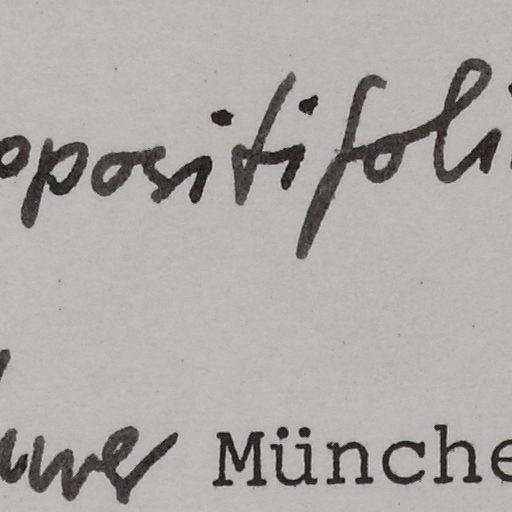 opositifoli
Münche